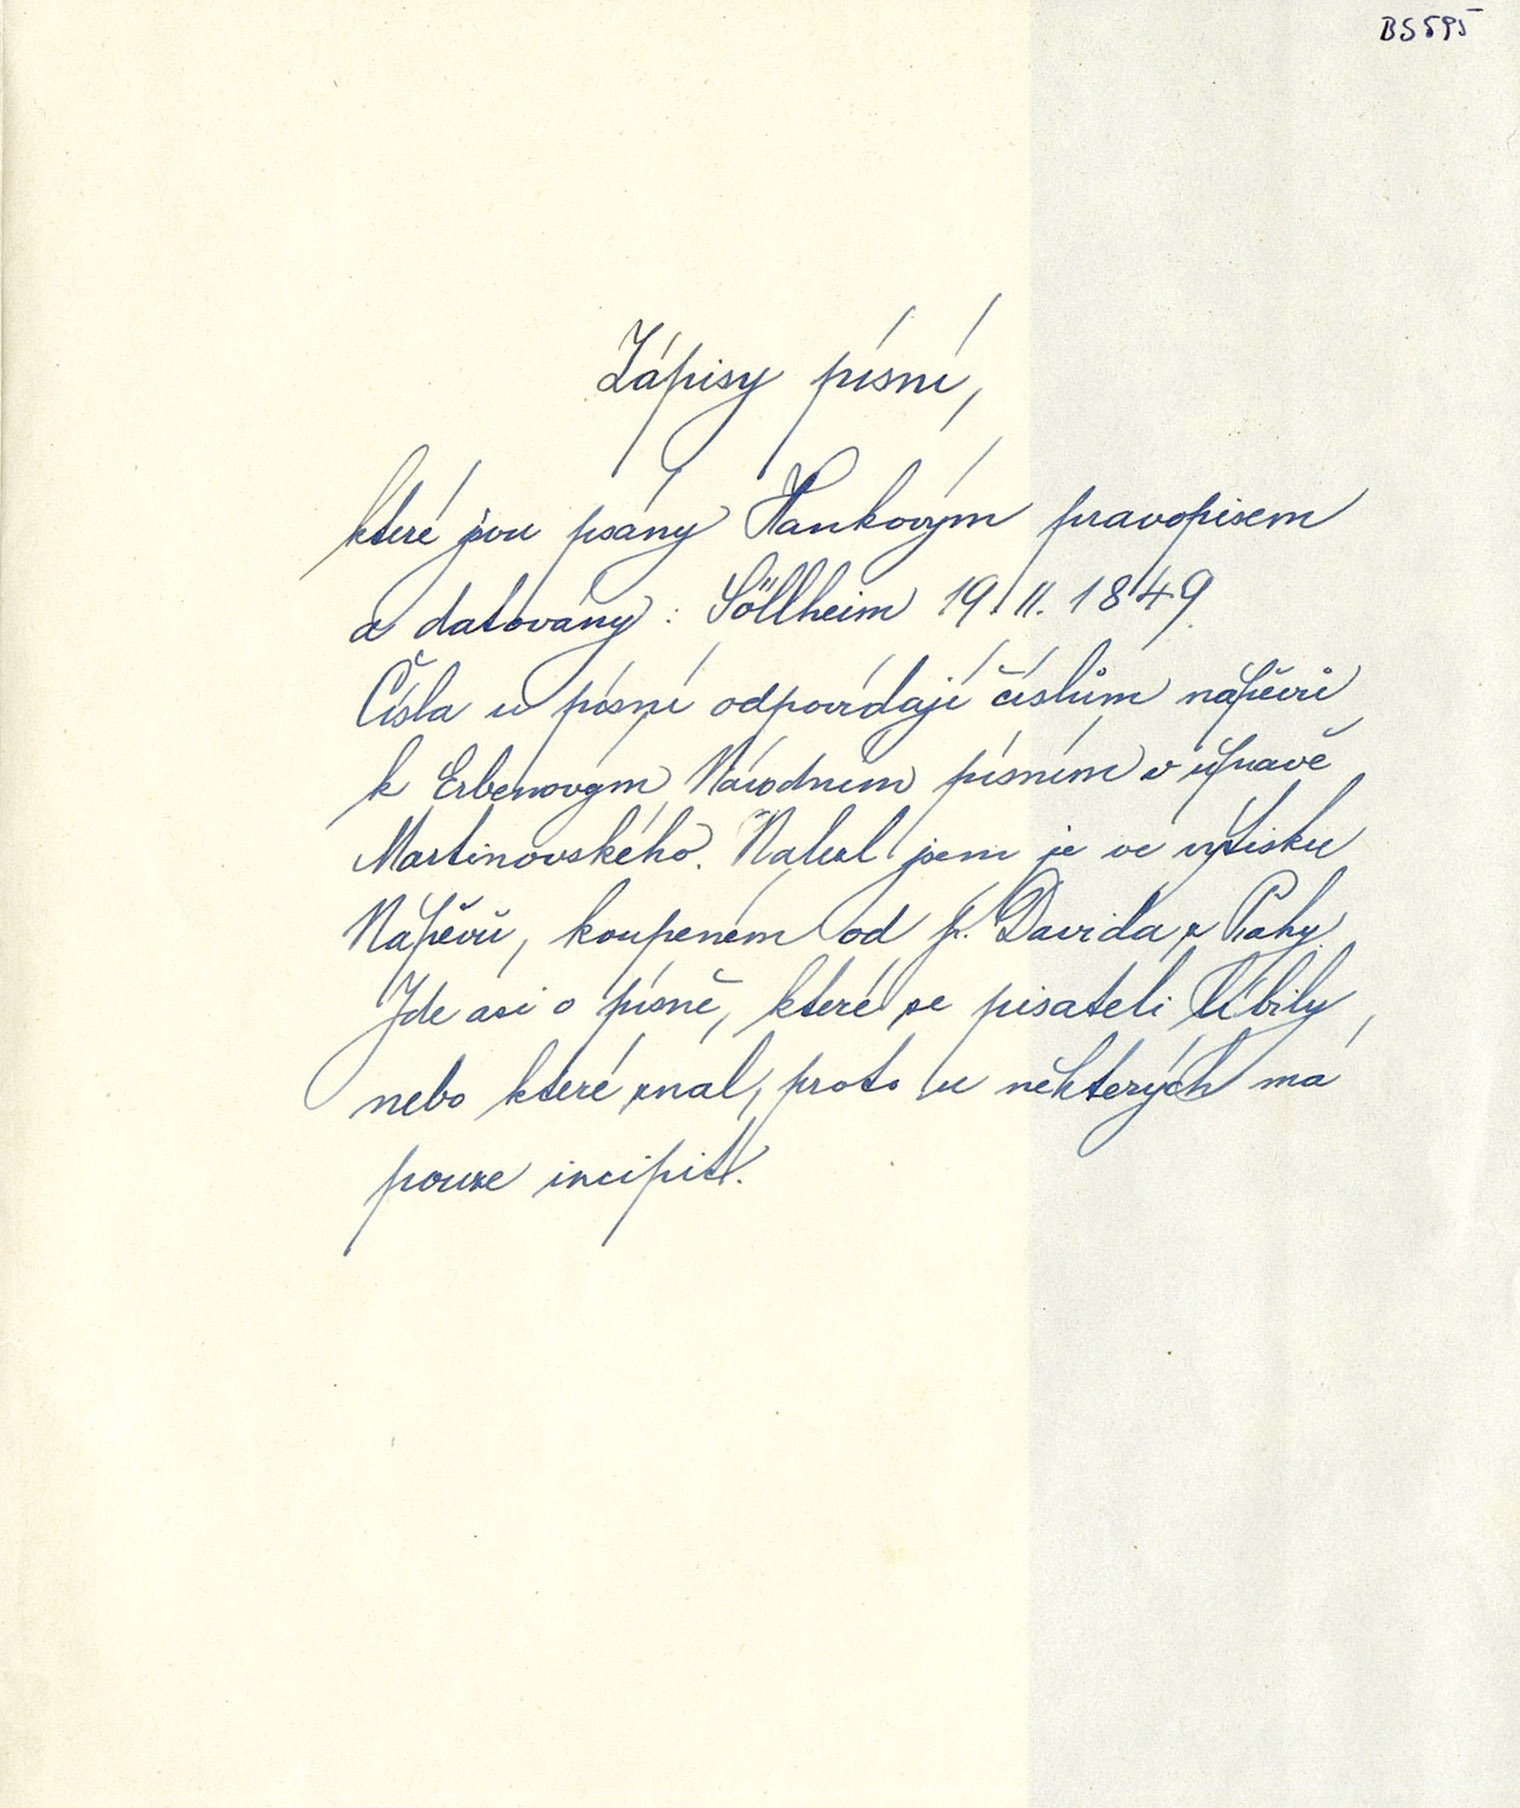 BS 595
Zápisy písní,
které jsou psány Hankovým pravopisem
a datovány: Söllheim 19. II. 1849.
Čísla u písní odpovídají číslům nápěvů
k Erbenovým Národním písním v úpravě
Martinovského. Nalezl jsem je ve výtisku
Nápěvů, koupeném od p. Davida z Prahy.
Jde asi o písně, které se pisateli líbily,
nebo které znal, proto u některých má
pouze incipit.